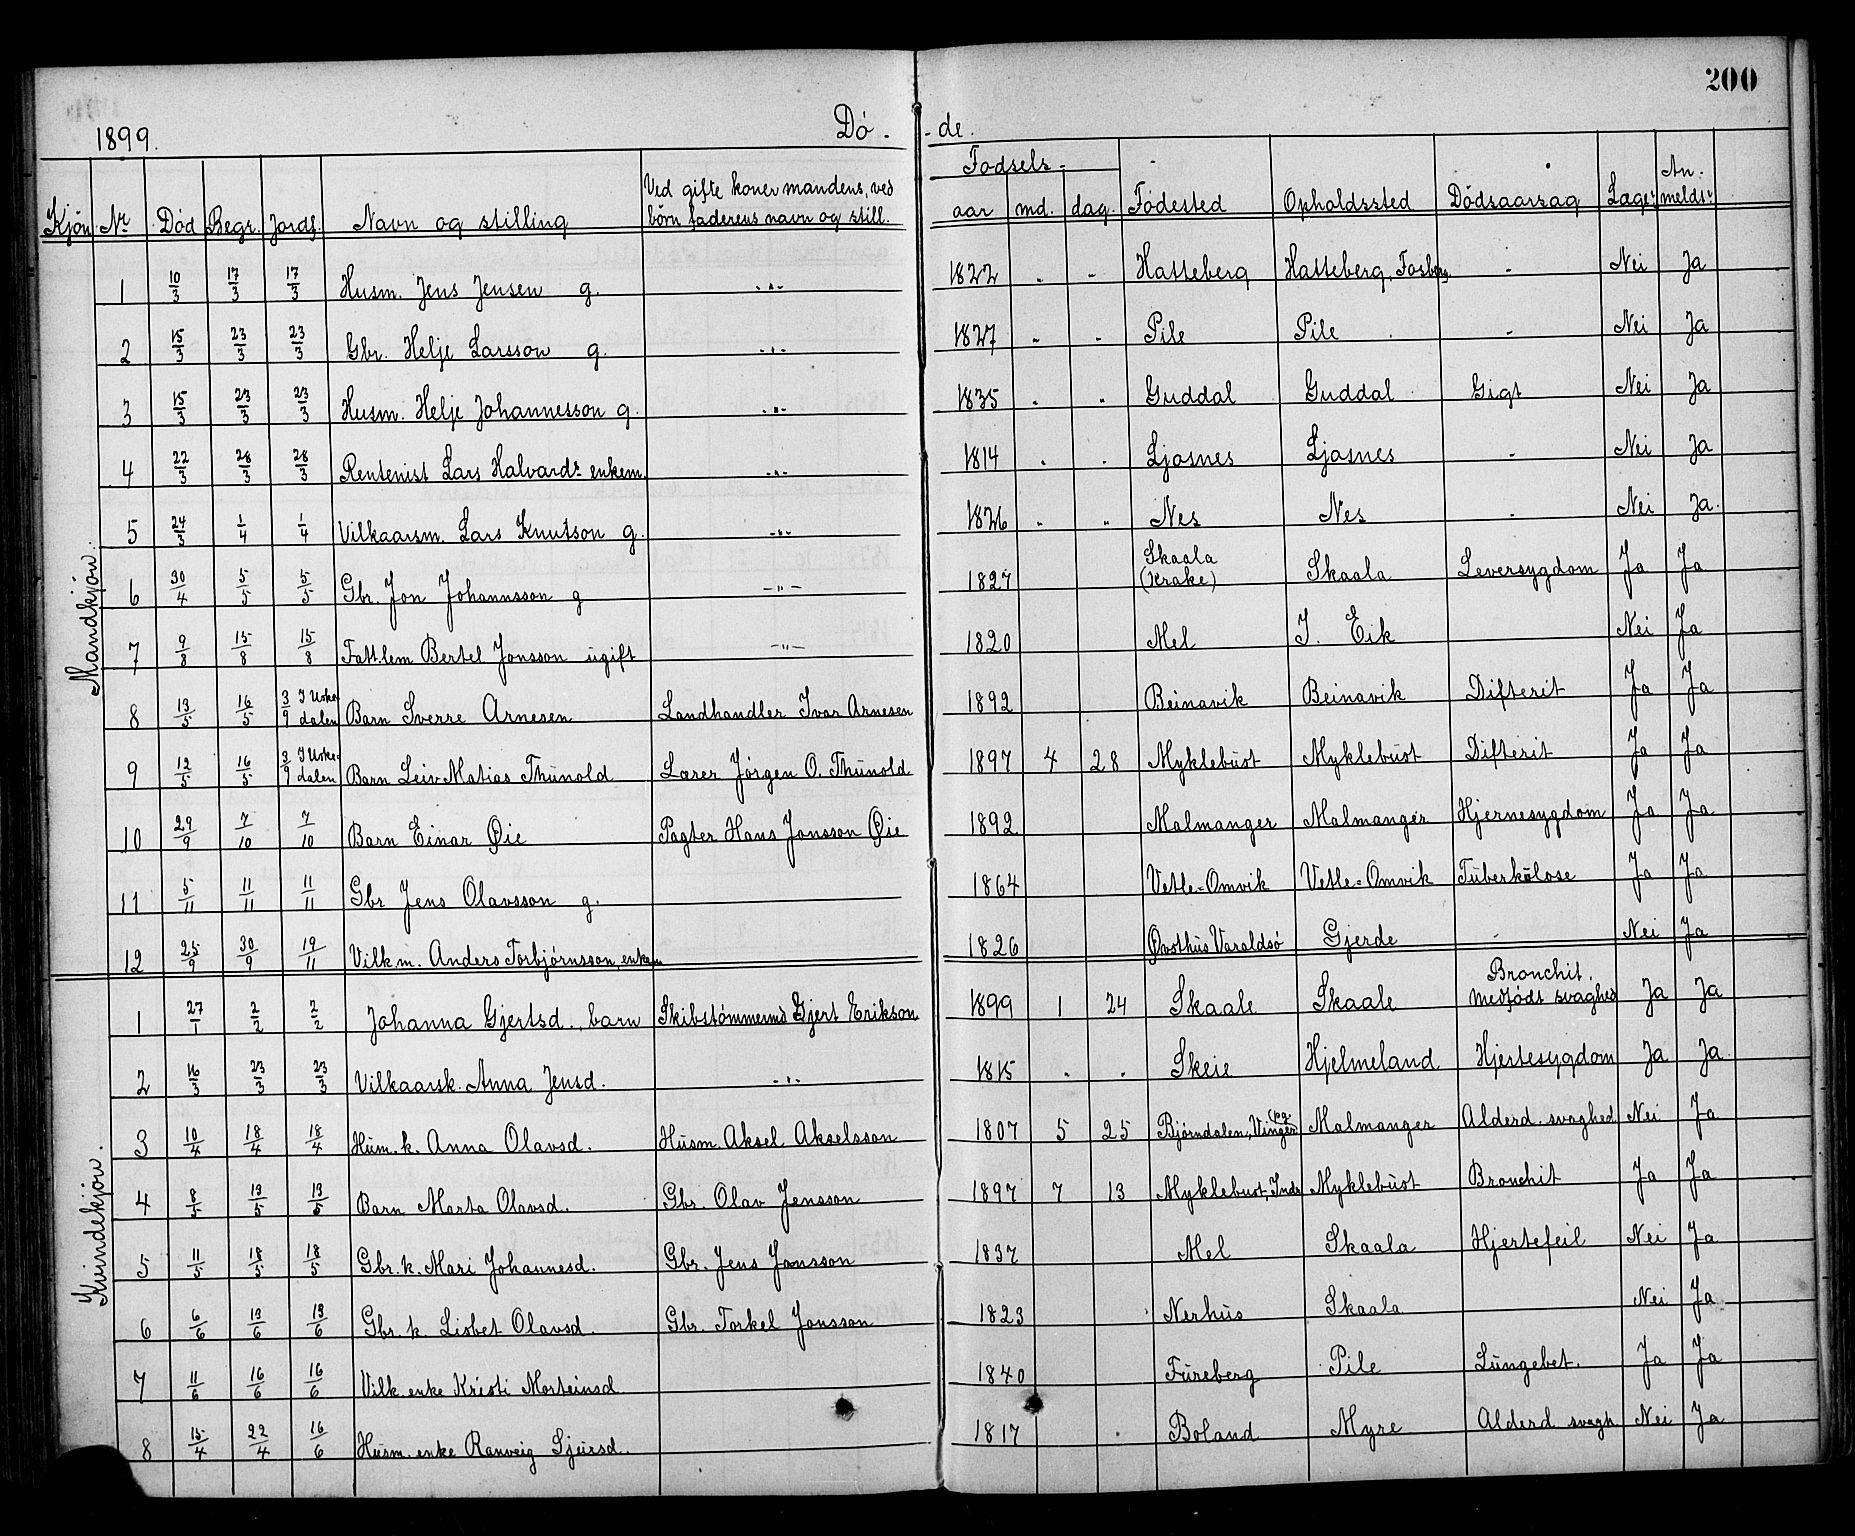 200
1899. Dö - - de.
Fodsels -
Kjön Nr Död Begr. Jordf. Navn og stilling Ved gifte koner mandens, ved börn faderens navn og still. aar md. dag. Födested Opholdssted Dödsaarsag Læge An-meldt
Mandkjön.
1 10/3 17/3 17/3 Husm. Jens Jensen g. -"- 1822 - - Hatteberg Hatteberg, Fosberg - Nei Ja
2 15/3 23/3 23/3 Gbr. Helje Larsson g. -"- 1827 - - Pile Pile - Nei Ja
3 15/3 23/3 23/3 Husm. Helje Johannesson g. -"- 1835 - - Guddal Guddal Gigt Nei Ja
4 22/3 28/3 28/3 Rentenist Lars Halvards- enkem. -"- 1814 - - Ljosnes Ljosnes - Nei Ja
5 24/3 1/4 1/4 Vilkaarsm. Lars Knutson g. -"- 1826 - - Nes Nes - Nei Ja.
6 30/4 5/5 5/5 Gbr. Jon Johannsson g -"- 1827 Skaala (Krake) Skaala Leversygdom Ja Ja
7 9/8 15/8 15/8 Fatt.lem Bertel Jonsson ugift -"- 1820 Mel I. Eik Nei Ja
8 13/5 16/5 3/9 I Uske-dalen Barn Sverre Arnesen Landhandler Ivar Arnesen 1892 Beinavik Beinavik Difterit Ja Ja
9 12/5 16/5 3/9 I Uske-dalen Barn Leiv Matias Thunold Lærer Jörgen O. Thunold 1897 4 28 Myklebust Myklebust Difterit Ja Ja
10 29/9 7/10 7/10 Barn Einar Øie Pagter Hans Jonsson Øie 1892 Malmanger Malmanger Hjernesygdom Ja Ja
11 5/11 11/11 11/11 Gbr Jens Olavsson g. 1864 Vetle-Omvik Vetle-Omvik Tuberkulose Ja Ja
12 25/9 30/9 19/11 Vilkm. Anders Torbjörnsson, enkem 1826 Øvsthus Varaldsö Gjerde - Nei Ja
Kvindekjön.
1 27/1 2/2 2/2 Johanna Gjertsd., barn Skibstömmermd Gjert Erikson 1899 1 24 Skaale Skaale Bronchit. Medfödt svaghed Ja Ja
2 16/3 23/3 23/3 Vilkaarsk. Anna Jensd. -"- 1815 - - Skeie Hjelmeland Hjertesygdom Ja Ja
3 10/4 18/4 18/4 Husm. k. Anna Olavsd. Husm. Aksel Akselsson 1807 5 25 Bjørndalen, Vinger Malmanger Alderd. svaghed Nei Ja
4 8/5 13/5 13/5 Barn Marta Olavsd. Gbr. Olav Jensson 1897 7 13 Myklebust, Inds Myklebust Bronchit Ja Ja
5 11/5 18/5 18/5 Gbr. k. Mari Johannesd. Gbr. Jens Jonsson 1837 Mel Skaala Hjertefeil Nei Ja
6 6/6 13/6 13/6 Gbr. k. Lisbet Olavsd. Gbr. Torkel Jonsson 1823 Nerhus Skaala Nei Ja
7 11/6 16/6 16/6 Vilk. enke Kristi Morteinsd 1840 Fureberg Pile Lungebet. Ja Ja
8 15/4 22/4 16/6 Husm. enke Ranveig Sjursd. 1817 Boland Myre Alderd. svagh Nei Ja